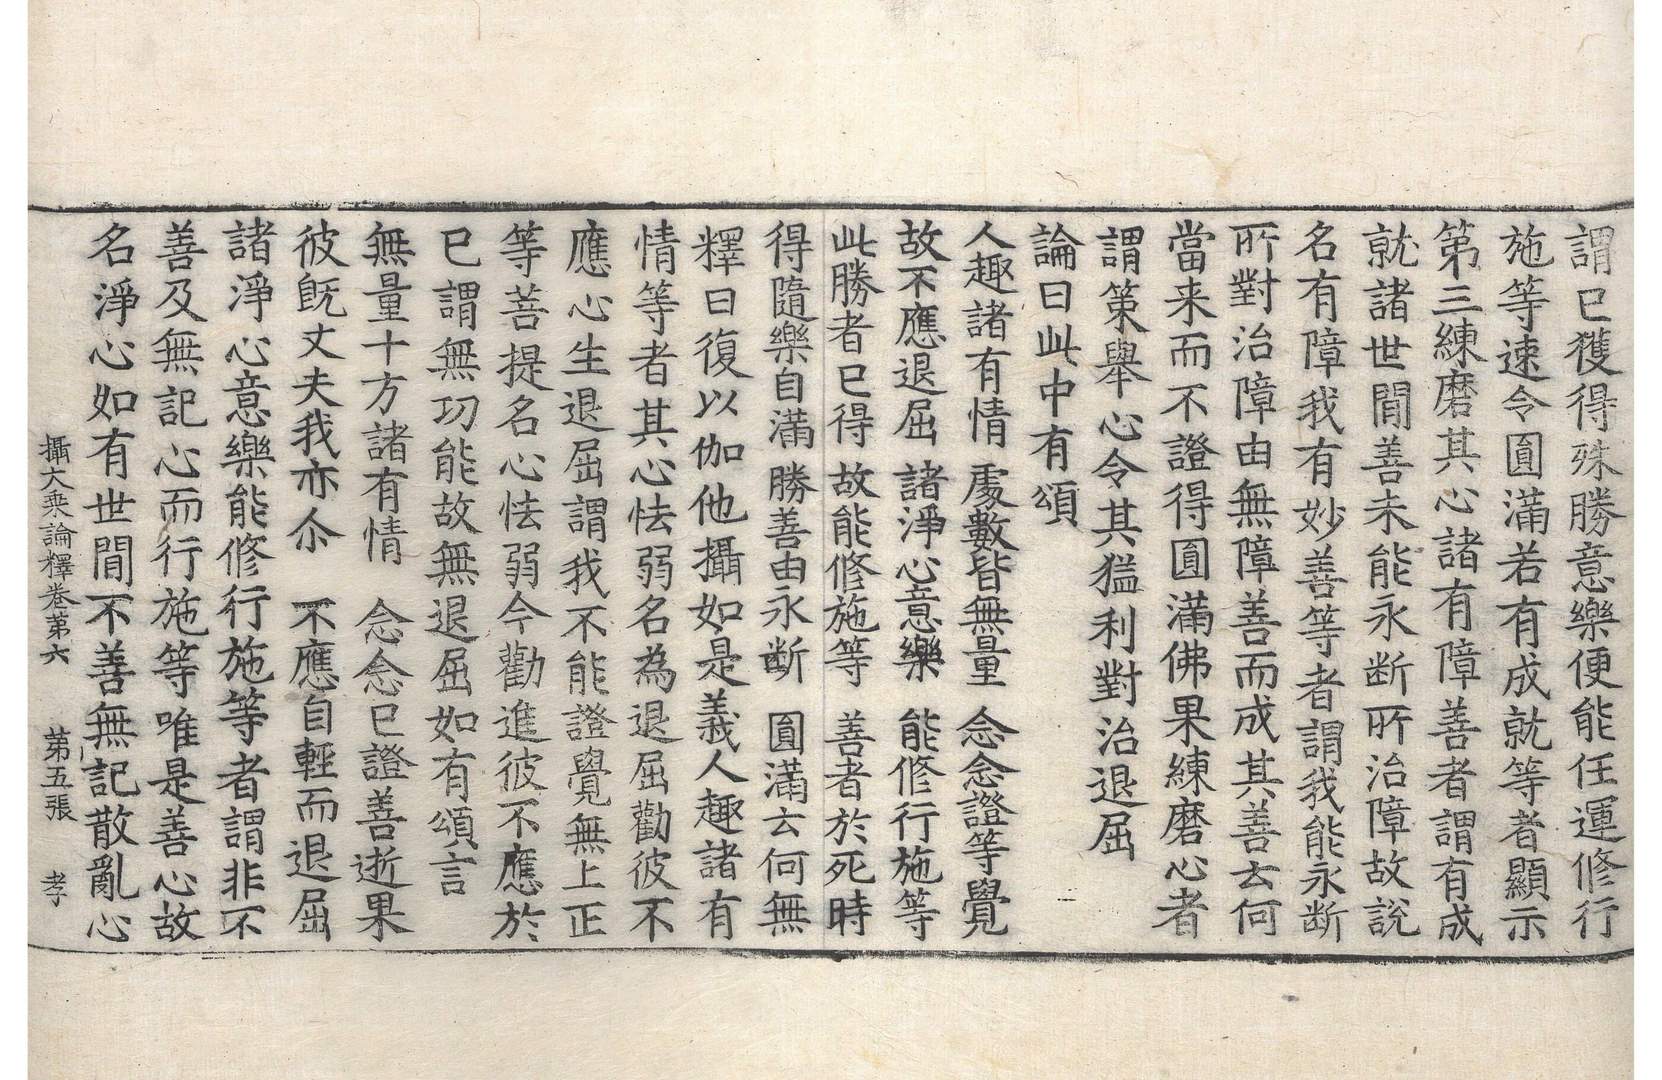 謂已獲得殊勝意樂便能任運修行
施等速令圓滿若有成就等者顯示
第三練磨其心諸有障善者謂有成
就諸世間善未能永断所治障故說
名有障我有妙善等者謂我能永断
所對治障由無障善而成其善云何
當来而不證得圓滿佛果練磨心者
謂策舉心令其猛利對治退屈
論曰此中有頌
人趣諸有情　處數皆無量　念念證等覺
故不應退屈　諸淨心意樂　能修行施等
此勝者已得　故能修施等　善者於死時
得隨樂自滿　勝善由永斷　圓滿云何無
釋曰復以伽他攝如是義人趣諸有
情等者其心怯弱名為退屈勸彼不
應心生退屈謂我不能證覺無上正
等菩提名心怯弱今勸進彼不應於
已謂無功能故無退屈如有頌言
無量十方諸有情　念念已證善逝果
彼旣丈夫我亦尒　不應自輕而退屈
諸淨心意樂能修行施等者謂非不
善及無記心而行施等唯是善心故
名淨心如有世間不善無記散亂心
攝大乘論釋卷第六　第五張　孝